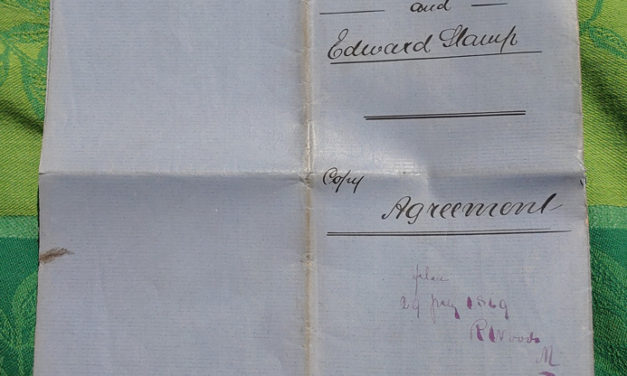 and
Edward Stamp
Copy
Agreement
29 1869
R Woods
M